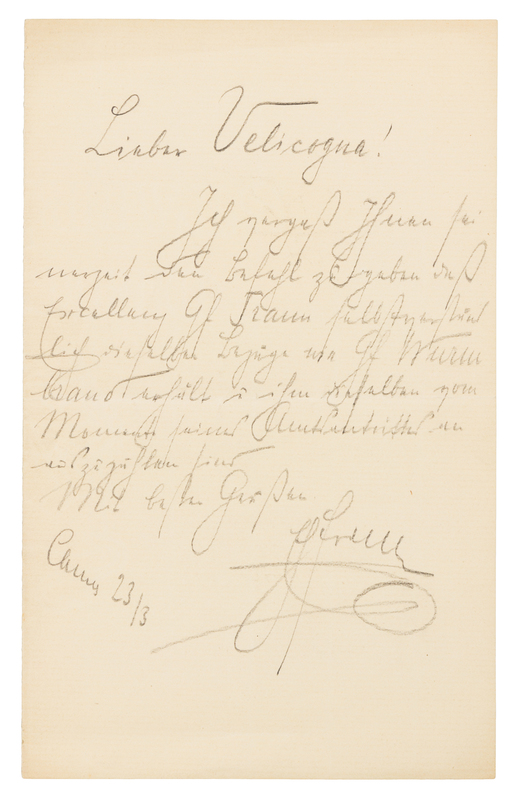 Lieber Velicogna!
Ich vergaß Ihnen sei
nerzeit den Befehl zu geben daß
Excellenz Gf Traun selbstverständ
lich dieselben Bezüge wie Gf Wurm
brand erhält u ihm dieselben vom
Momente seines Amtsantrittes an
auszuzahlen sind
Mit besten Grüßen
Franz
23/3